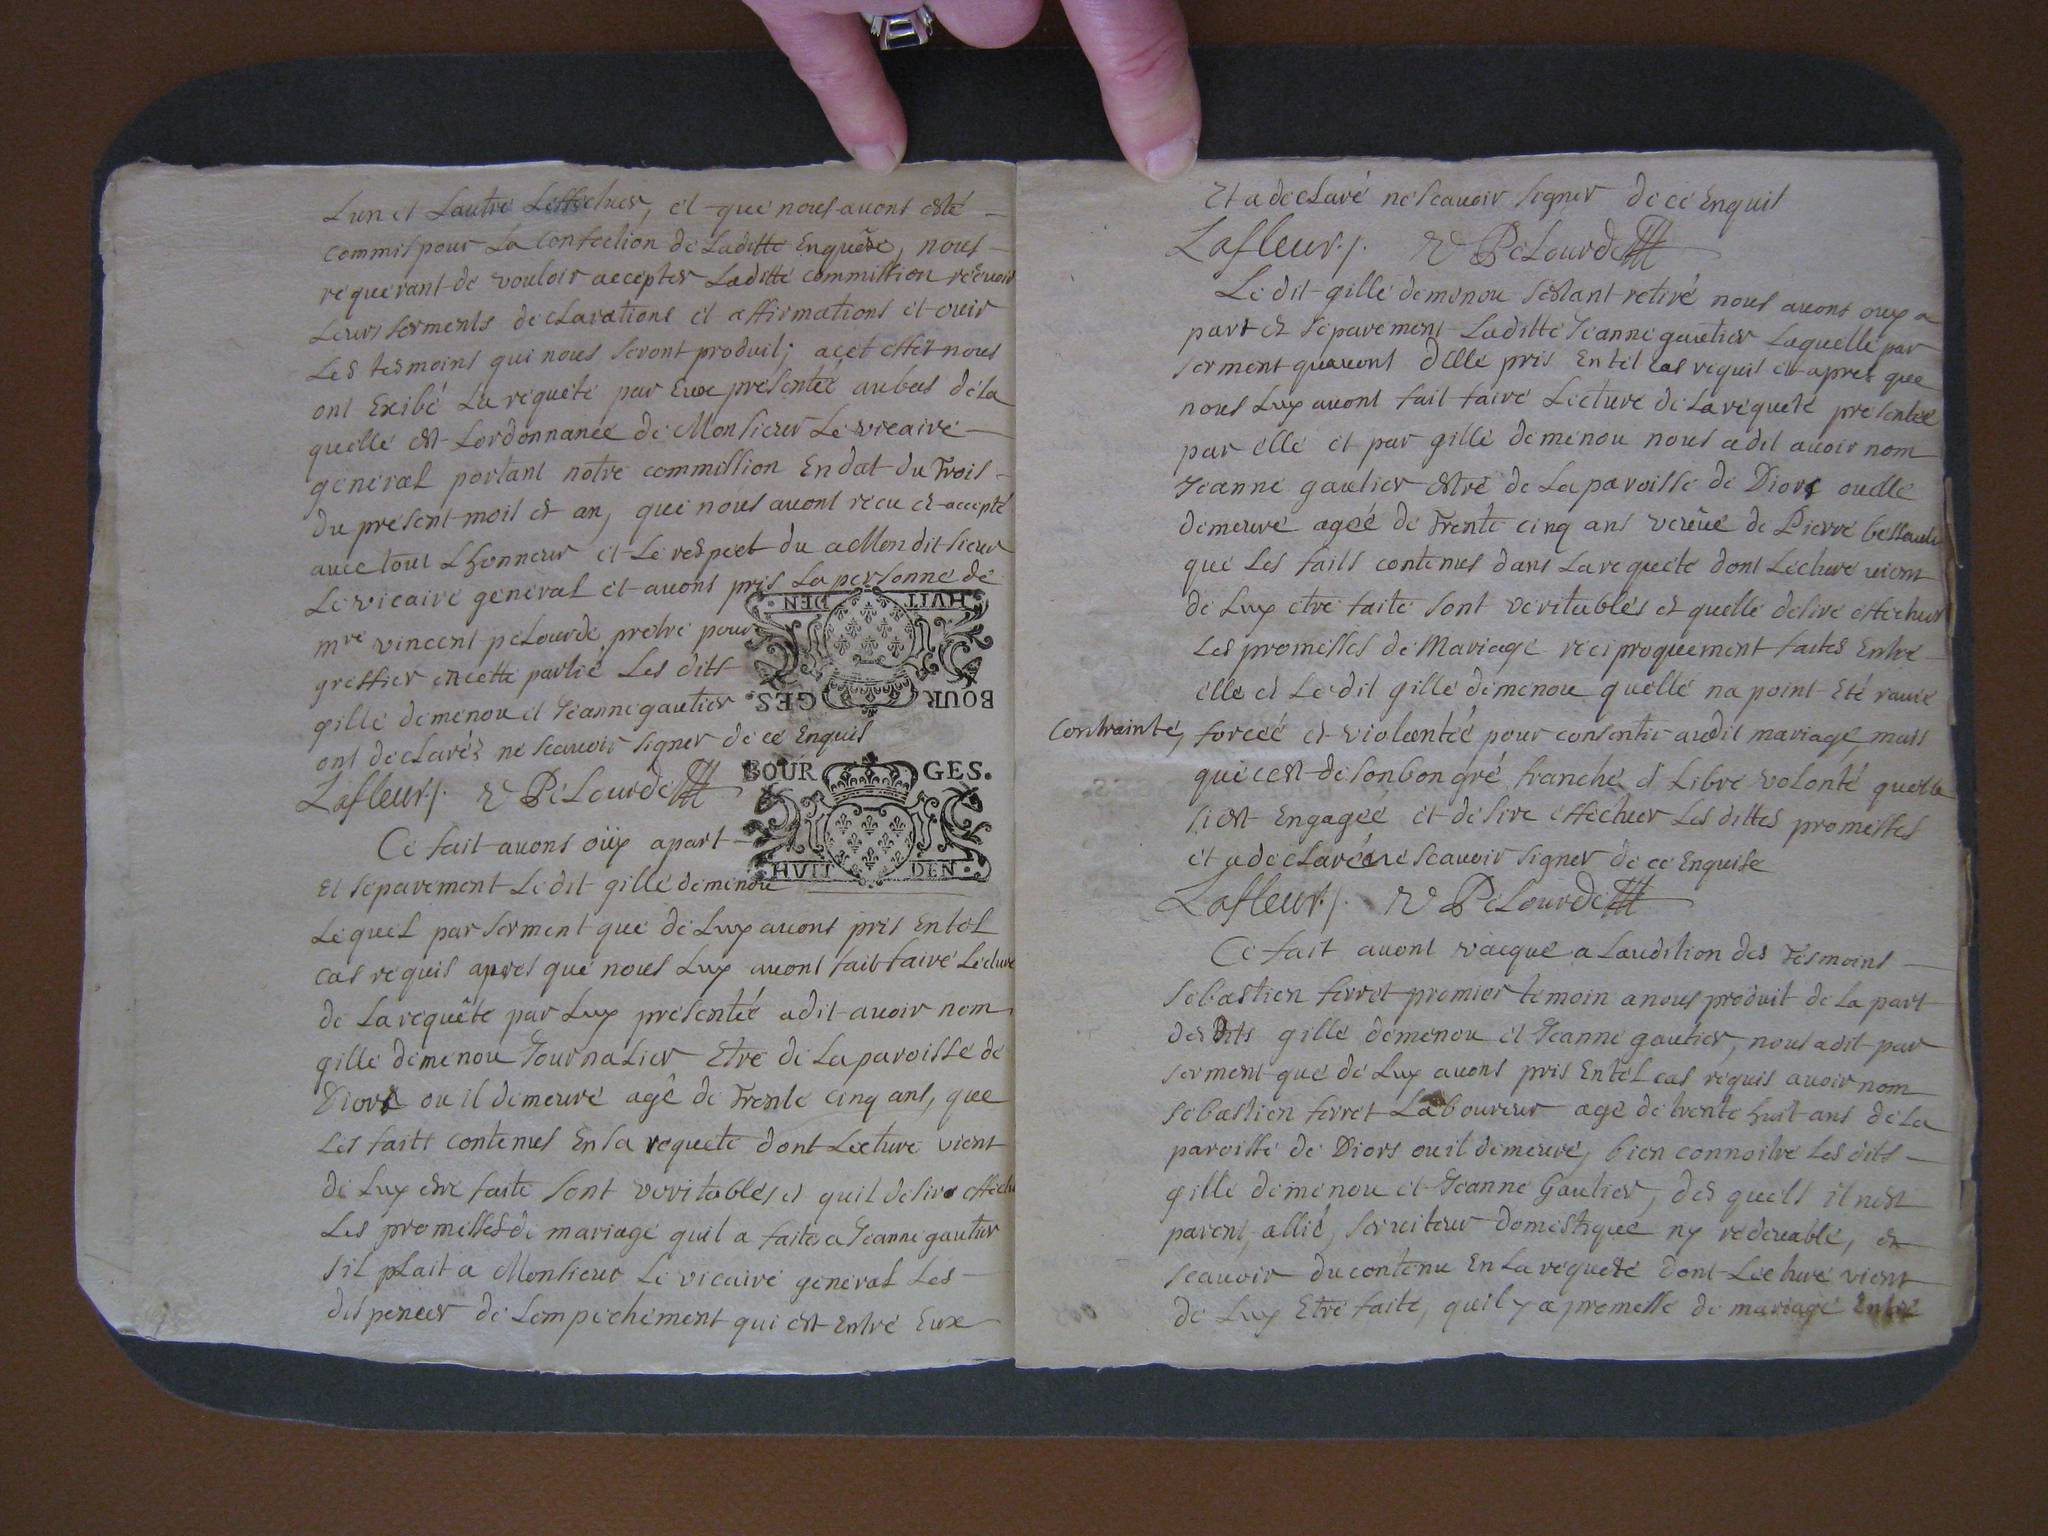 Lun et Lautre Leffectuer, et que nous avons esté
commis pour La Confection de Laditte Enquête, nous
requerant de vouloir accepter Laditte commission recevoir
Leurs serments declarations et affirmations et ouir
Les tesmoins qui nous seront produit; a cet effet nous
ont Exibé La requête par Eux presentée au bas de la
quelle est Lordonnance de Monsieur Le vicaire
general portant notre commission En dat du Trois
du present mois et an, que nous avons recu et accepté
avec tout Lhonneur et Le respect du a Mondit sieur
Le vicaire general et avons pris La personne de
mre vincent peLourde, pretre pour
greffier en cette partie Les dits
gille demenou et Jeanne gautier
ont declarés ne scavoir signer de ce Enquis
Lafleur.
PeLourde
HUIT DEN.
BOURGES.
BOURGES.
HUIT DEN.
Ce fait avons oüy apart
Et separement Ledit gille demenou
Lequel par serment que de Luy avons pris En tel
cas requis apres que nous Luy avons fait faire Lecture
de La requête par Luy presentée a dit avoir nom
gille demenou Journalier Etre de La paroisse de
Diors ou il demeure agé de Trente cinq ans, que
Les faits contenus En sa requete dont Lecture vient
de Luy estre faite sont veritables et quil desire effectu
Les promesses de mariage quil a faites a Jeanne gautier
sil plait a Monsieur Le vicaire general Les
dispencer de Lempechement qui est Entre Eux
Et a declaré ne scavoir signer de ce Enquis
Lafleur. PeLourde
Le dit gille demenou sestant retiré nous avons ouy a
part et separement Laditte Jeanne gautier Laquelle par
serment quavons delle pris En tel cas requis et apres que
nous Luy avons fait faire Lecture de La requete presentée
par elle et par gille demenou nous a dit avoir nom
Jeanne gautier estre de La paroisse de Diors ou elle
demeure agée de Trente cinq ans veuve de Pierre
que Les faits contenus dans La requete dont Lecture vient
de Luy etre faite sont veritables et quelle desire effectuer
Les promesses de Mariage reciproquement faites Entre
elle et Le dit gille demenou quelle na point Eté ravie
Contrainte, forcée et violentée pour consentir audit mariage mais
que cest de son bon gré, franche et Libre volonté quelle
si est Engagée et desire effectuer Les dittes promesses
et a declarée ne scavoir signer de ce Enquise
Lafleur. PeLourde
Ce fait avons vacque a Laudition des Tesmoins
Sebastien ferret premier temoin a nous produit de La part
des Dits gille demenou et Jeanne gautier, nous a dit par
serment que de Luy avons pris En tel cas requis avoir nom
Sebastien ferret Laboureur agé de trente huit ans de La
paroisse de Diors ou il demeure, bien connoitre Les dits
gille demenou et Jeanne Gautier, des quels il nest
parent, allié, serviteur domestique ny redevable, et
scavoir du contenu En La requeste dont Lecture vient
de Luy Etre faite, quil y a promesse de mariage Entre